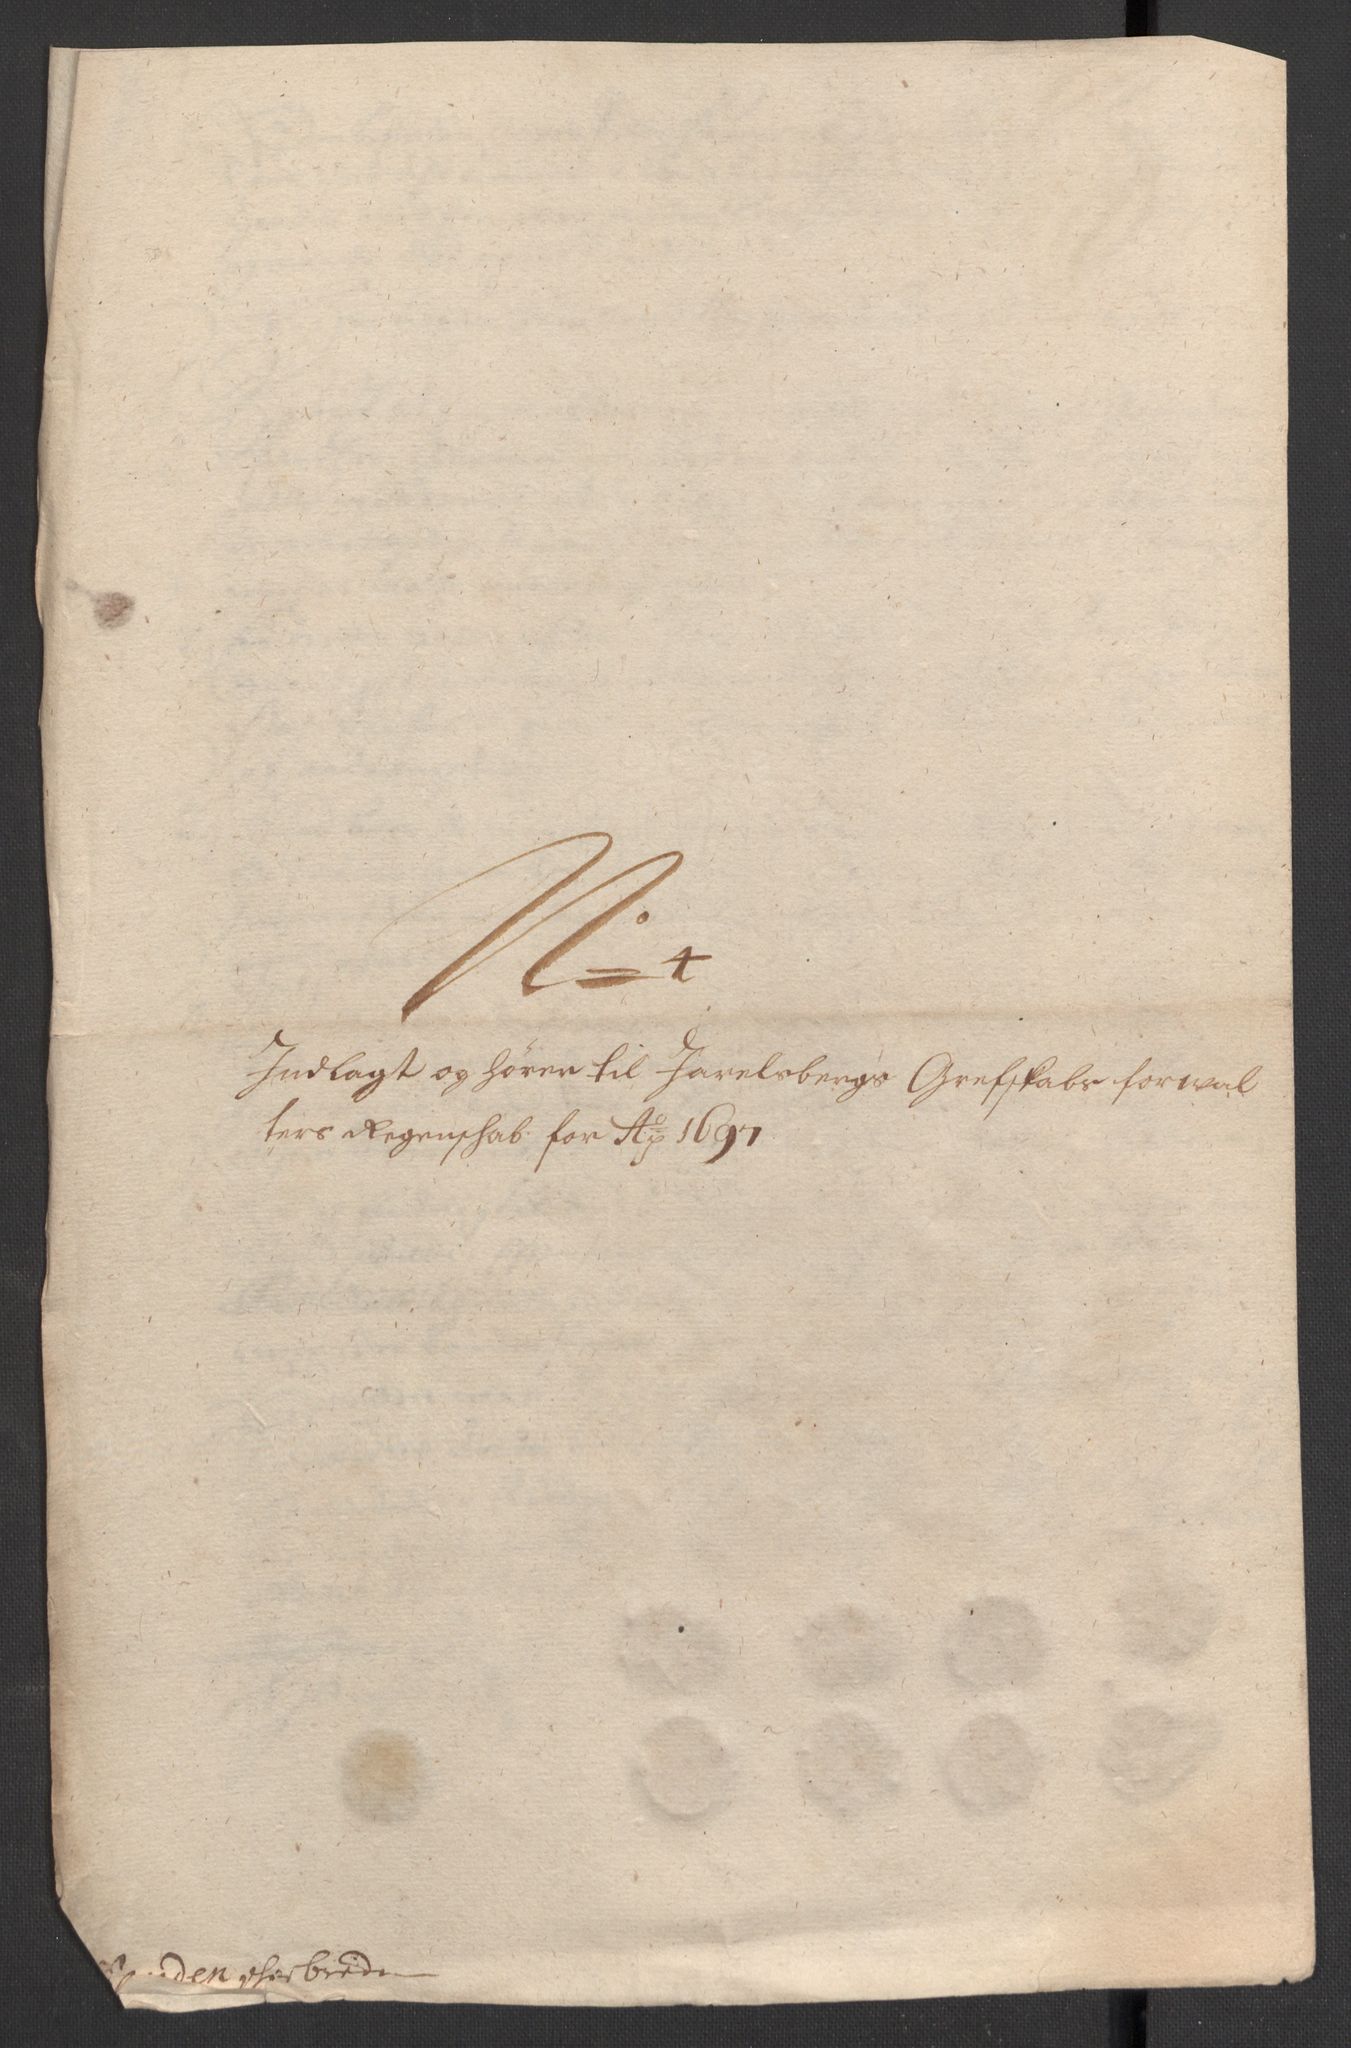 No 4
Indlagt og hører til Jarelsbergs Grefskabs forwal
ters Regenschab for Ao 1697